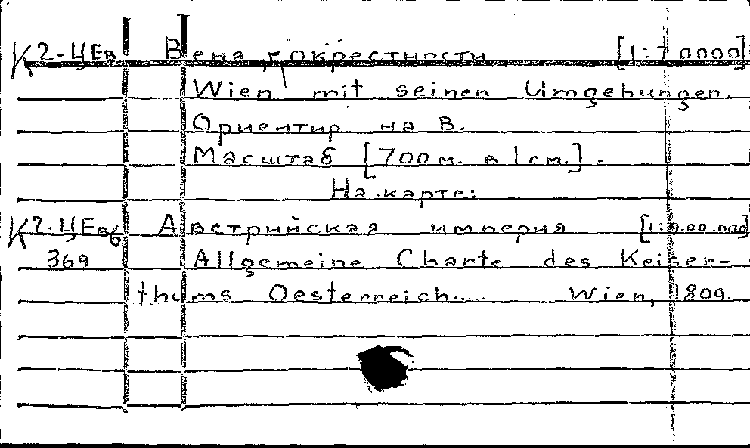 К 2-ЦЕв Вена, окрестности [1:70000]
Wien mit seinen Umgebungen.
Ориентир на В.
Масштаб [700 м. в 1 см.].
На карте:
К 2-ЦЕвб Австрийская империя
369 Allgemeine Charte des Keiser-
thums Oesterreich... Wien, 1809.